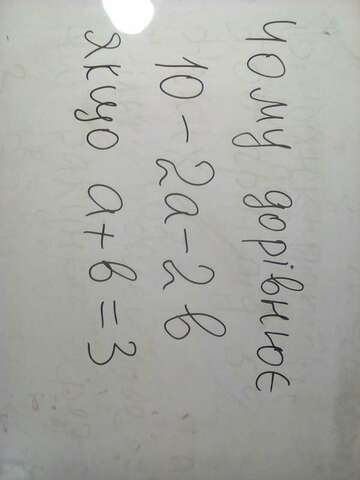 чому дорівнює
10 - 2a - 2в
якщо a + в = 3